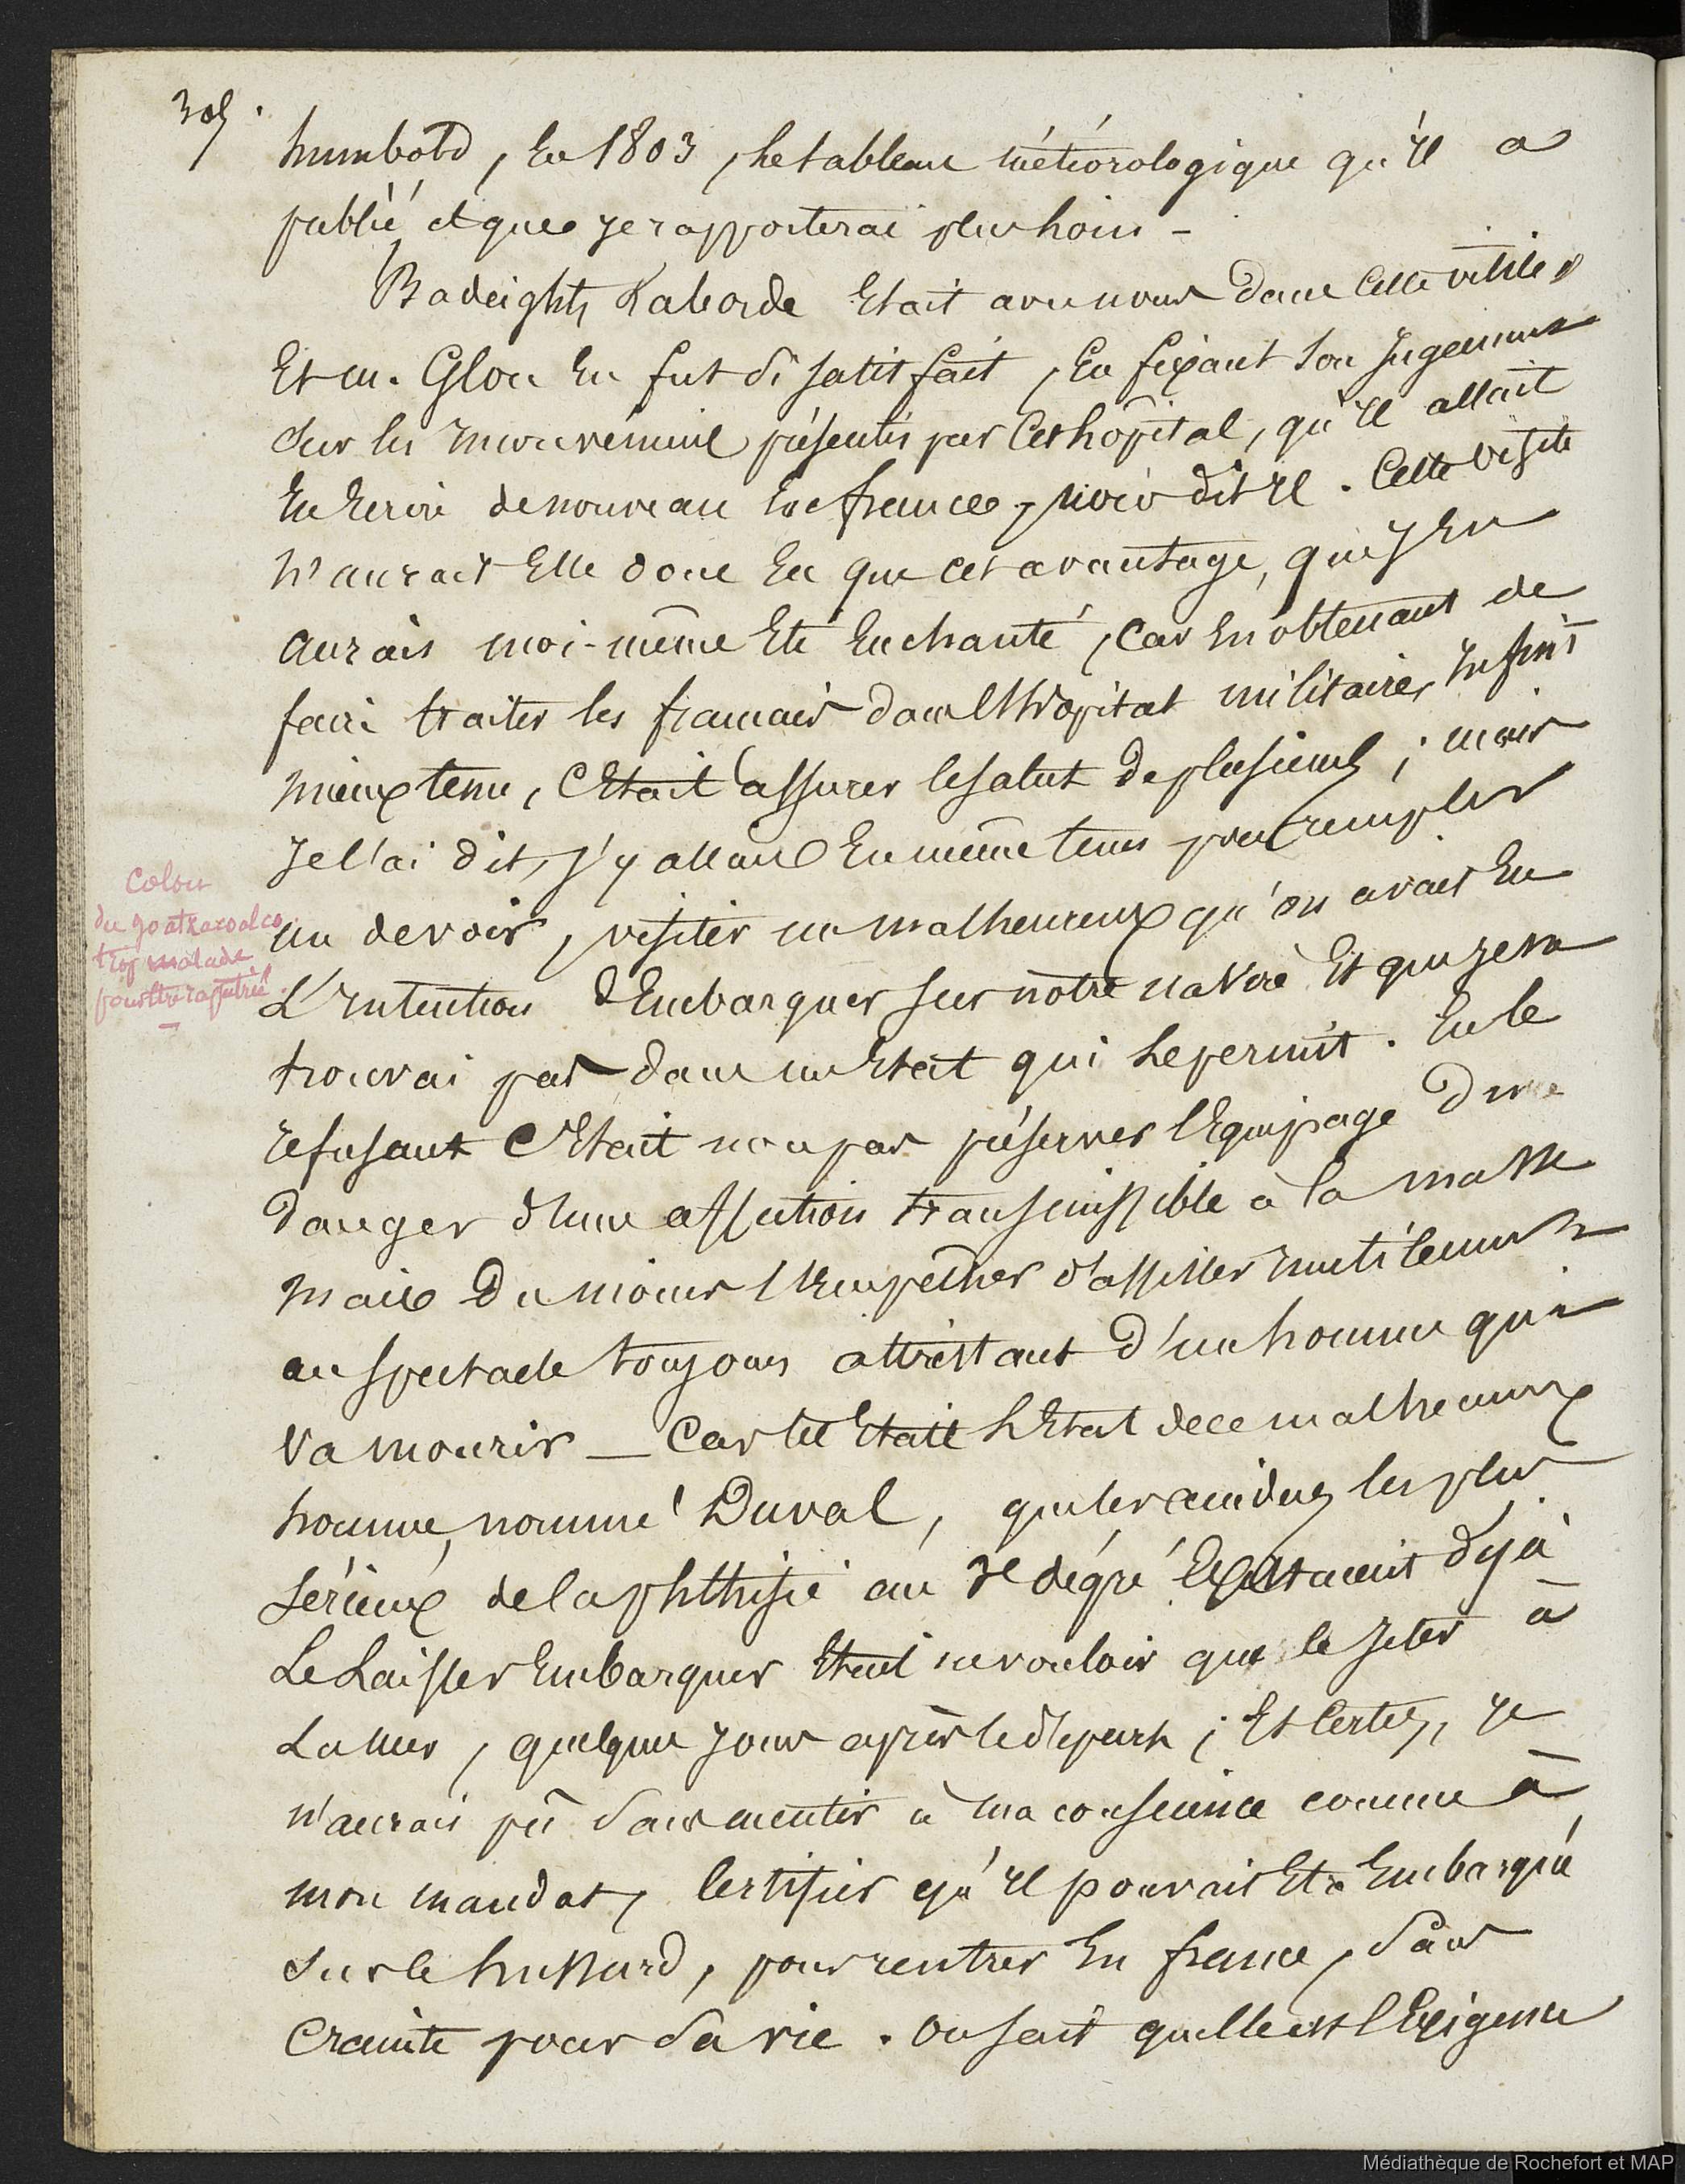 humbold, En 1803, le tableau météorologique qu'il a
publié et que je rapporterai plus loin -
Badeights Laborde Etait avec nous dans Cette visite,
Et m. Glou En fut si satisfait, En fixant son jugement
sur les mouvements présentés par Cet hopital, qu'il allait
En Ecrire de nouveau En france, dit il. Cette visite
n'aurait Elle donc Eu que cet avantage, que j'En
aurais moi-même Eté Enchanté, Car En obtenant de
faire traiter les français dans l'hopital militaire, Infini
mieux tenu, C'Etait assurer le salut de plusieurs; mais
Je l'ai dit, j'y allais En même tems pour remplir
un devoir, visiter un malheureux qu'on avait Eu
L'Intention d'Embarquer sur notre navire Et que je ne
trouvai pas dans un Etat qui le permit. En le
refusant C'Etait non pas préserver l'Equipage du
danger d'une affection transmissible à la masse
mais du moins l'Empêcher d'assister inutilement
au spectacle toujours attristant d'un homme qui
va mourir — Car tel Etait L'Etat de ce malheureux
homme, nommé Duval, que les accidens les plus
sérieux de la phthisie au 3e dégré Existaient déjà
Le Laisser Embarquer Etait ne vouloir que le jeter à
La mer, quelque jour après le départ; Et Certes, je
n'aurais pû sans mentir à ma conscience comme à
mon mandat, Certifier qu'il pouvait Etre Embarqué
sur le hussard, pour rentrer En france, sans
Crainte pour sa vie. On sait quelle est l'Exigence
Colon
du goatzacoalco
trop malade
pour être rapatrié.
Médiathèque de Rochefort et MAP